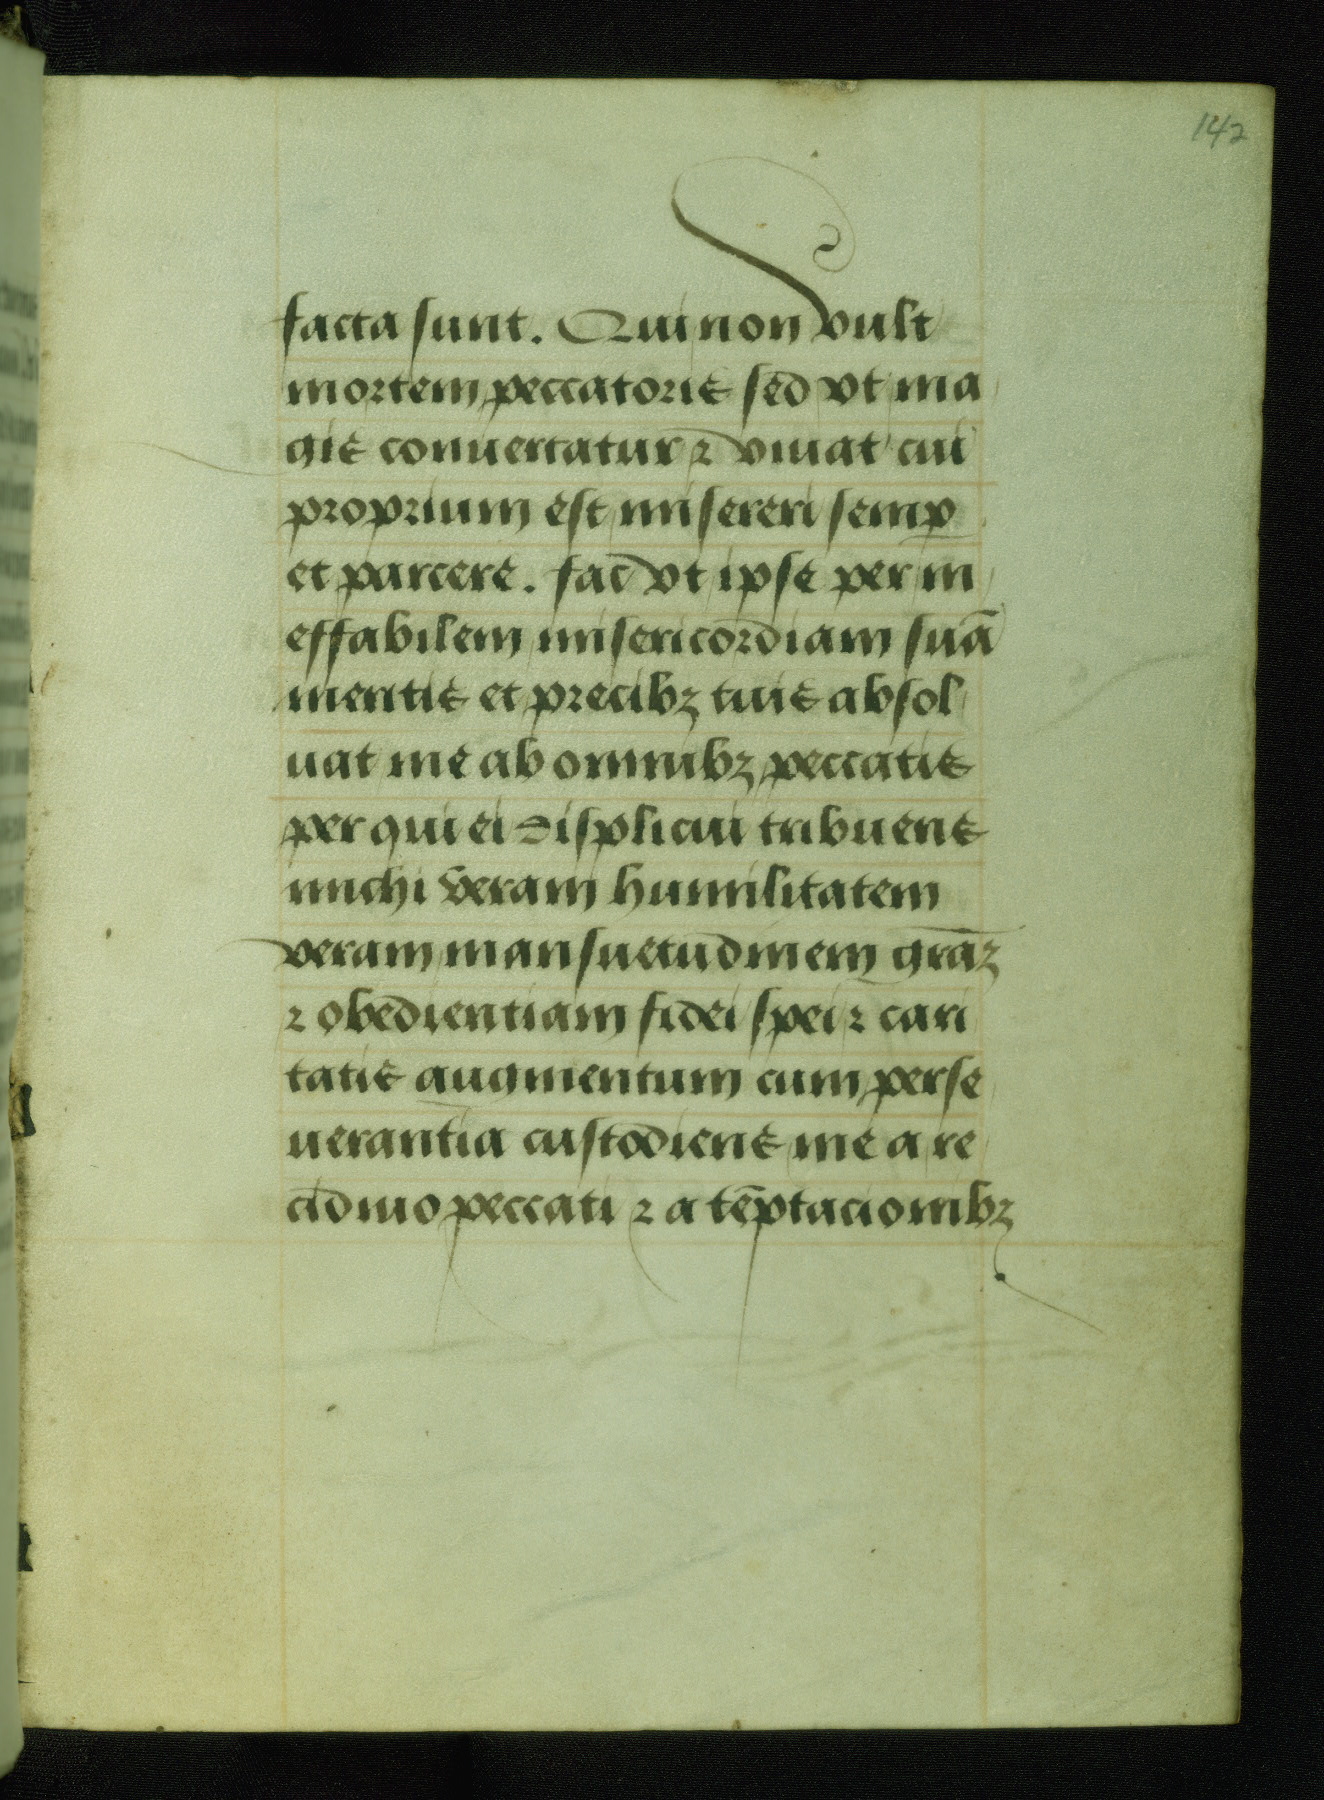 142
facta sunt. Qui non vult
mortem peccatoris sed vt ma
gis conuertatur ⁊ viuat cui
proprium est misereri semp̲
et parcere. fac vt ipse per in
effabilem misericordiam suā
meritis et precibꝫ tuis absol
uat me ab omnibꝫ peccatis
per qui ei displicui tribuens
michi veram humilitatem
veram mansuetudinem gr̄aꝫ
⁊ obedientiam fidei spei ⁊ cari
tatis augmentum cum perse
uerantia custodiens me a re
cidiuo peccati ⁊ a tēptacionibꝫ